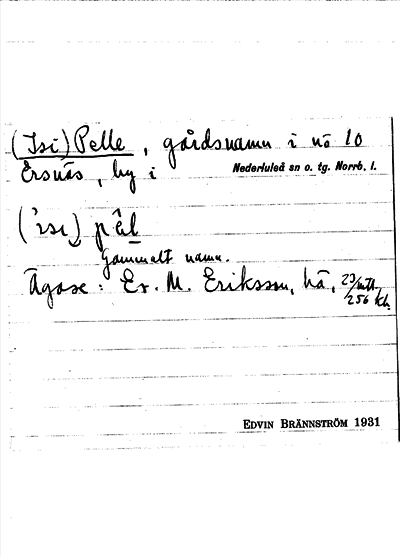 (Isi)Pelle, gårdsnamn i nō 10
Ersnäs, by i Nederluleå sn o. tg. Norrb. l.
('ısı) pêl
Gammalt namn.
Ägare: Er. M. Eriksson, hä, 23/256 mtl
EDVIN BRÄNNSTRÖM 1931